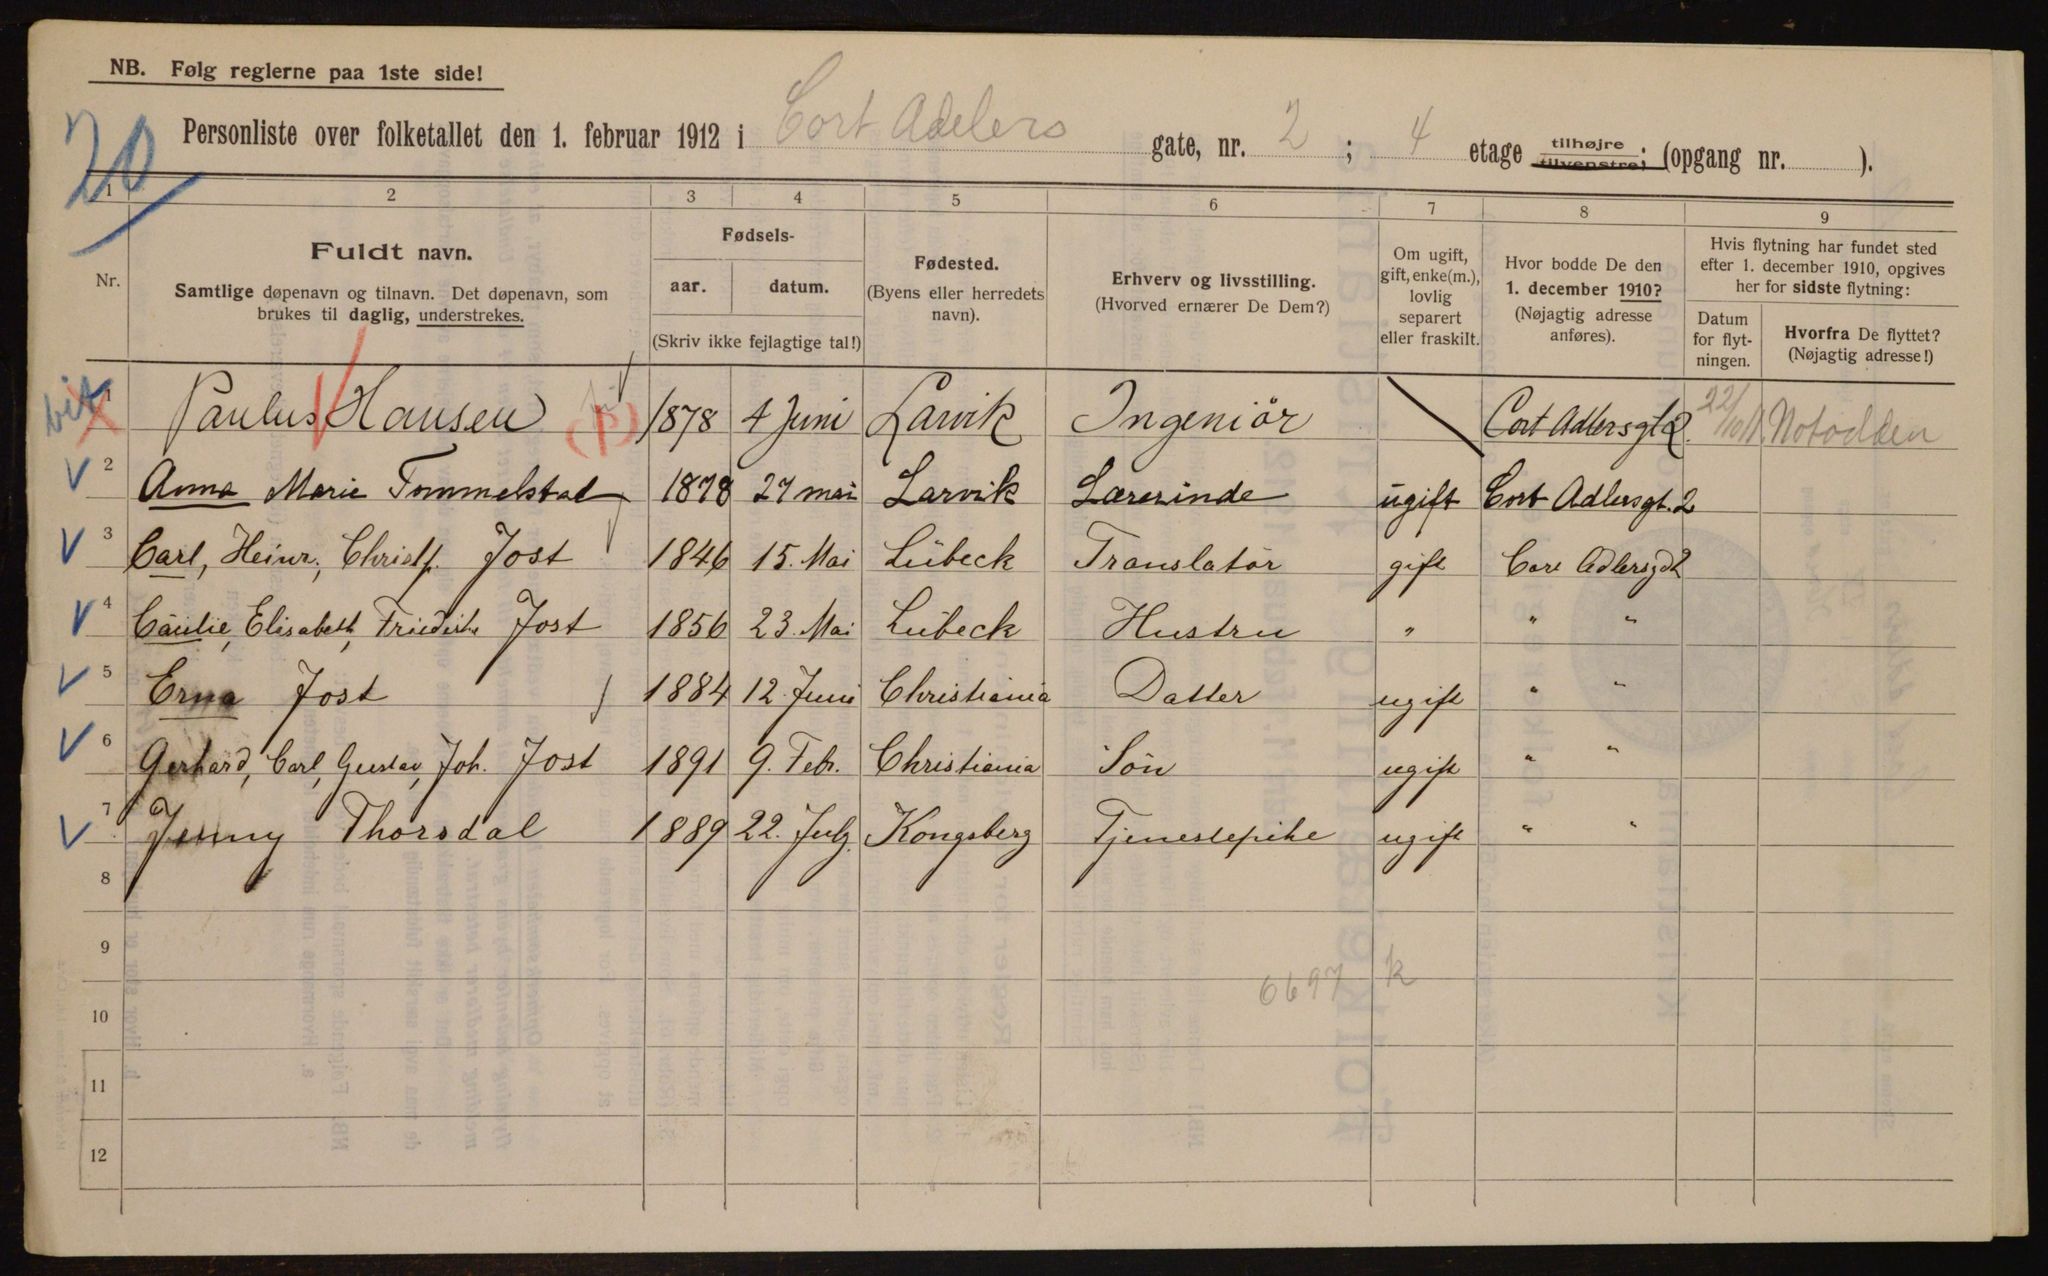 NB. Følg reglerne paa 1ste side!
20
Personliste over folketallet den 1. februar 1912 i Cort Adelers gate, nr. 2 ; 4 etage tilhøjre tilvenstre; (opgang nr. ).
1 2 3 4 5 6 7 8 9
Nr.
Fuldt navn.
Samtlige døpenavn og tilnavn. Det døpenavn, som
brukes til daglig, understrekes.
Fødsels-
aar. datum.
(Skriv ikke fejlagtige tal!)
Fødested.
(Byens eller herredets
navn).
Erhverv og livsstilling.
(Hvorved ernærer De Dem?)
Om ugift,
gift, enke(m.),
lovlig
separert
eller fraskilt.
Hvor bodde De den
1. december 1910?
(Nøjagtig adresse
anføres).
Hvis flytning har fundet sted
efter 1. december 1910, opgives
her for sidste flytning:
Datum
for flyt-
ningen.
Hvorfra De flyttet?
(Nøjagtig adresse!)
1 Paulus Hansen (p) 1878 4 Juni Larvik Ingeniör Cort Adlersgt 2. 22/10/11. Notodden
2 Anna Marie Tommelstad 1878 27 mai Larvik Lærerinde ugift Cort Adlersgt. 2
3 Carl, Heinr., Christf. Jost 1846 15. Mai Lübeck Translatör gift Cort Adlersgd 2
4 Cäcilie, Elisabeth, Friederike Jost 1856 23. Mai Lübeck Hustru " " "
5 Erna Jost 1884 12. Juni Christiania Datter ugift " "
6 Gerhard, Carl, Gustav, Joh. Jost 1891 9. Febr. Christiania Sön ugift " "
7 Jenny Thorsdal 1889 22. July Kongsberg Tjenestepike ugift " "
8
9
6697 k
10
11
12